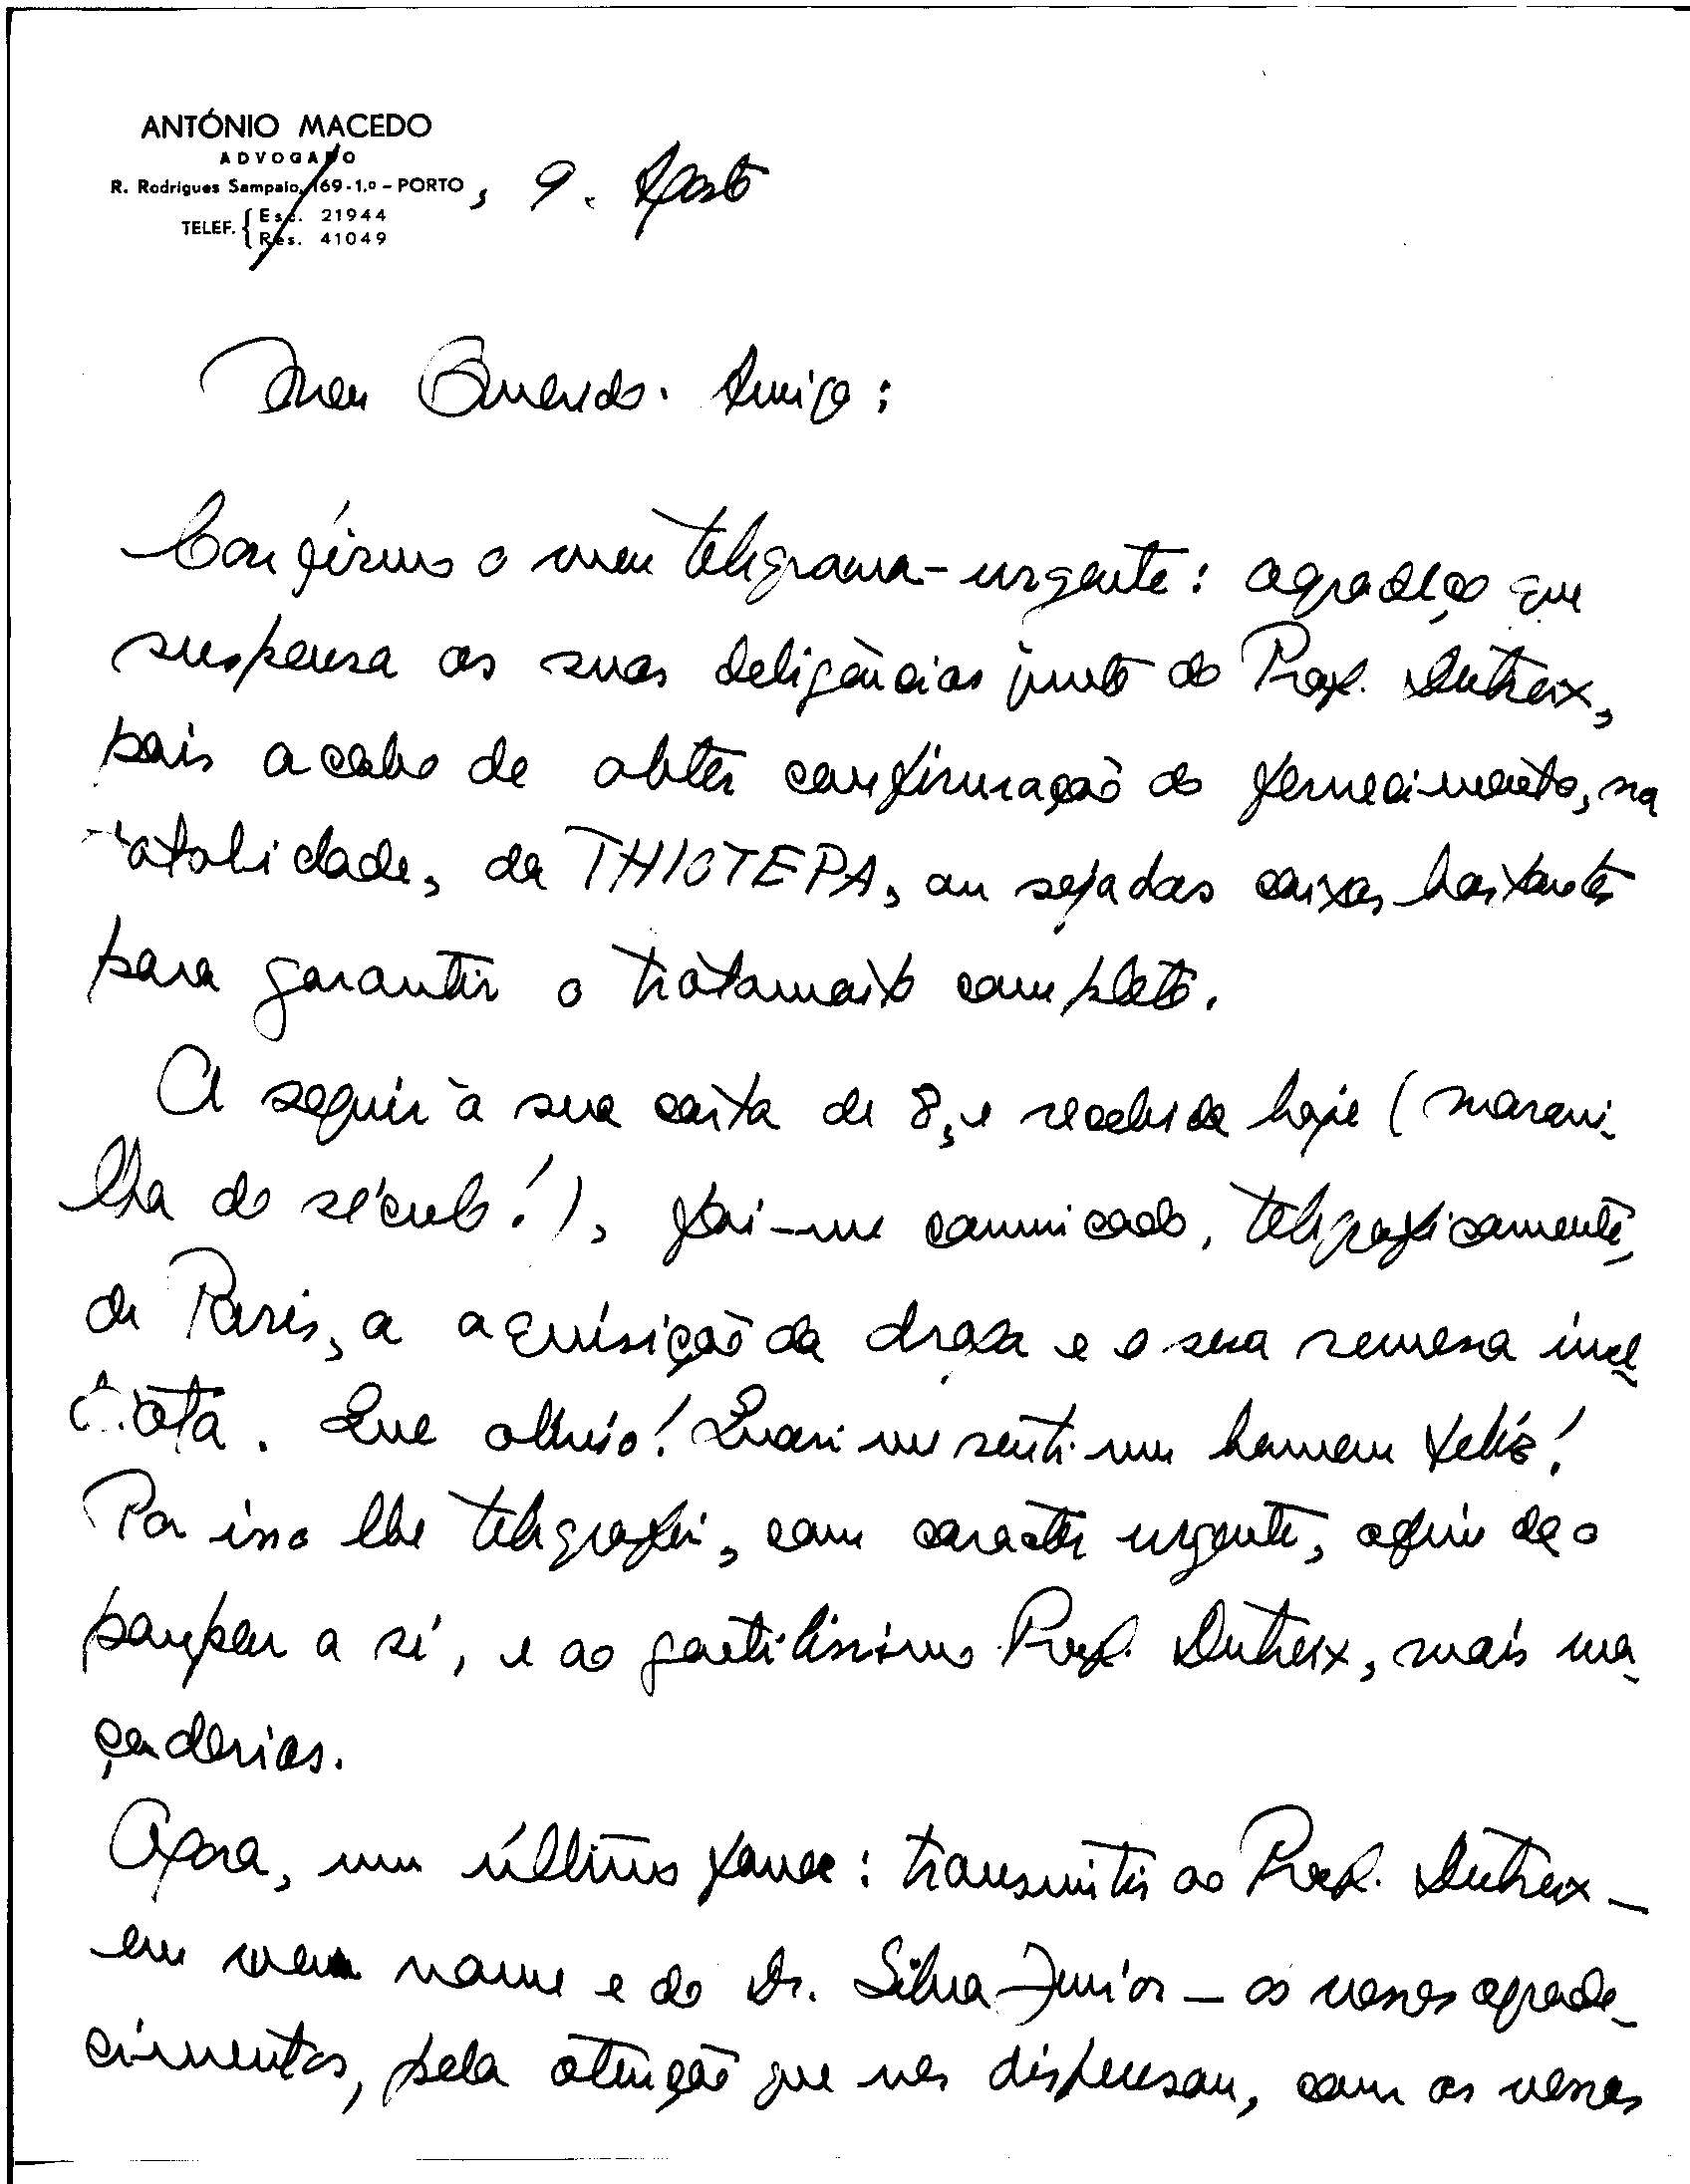 ANTÓNIO MACEDO
ADVOGADO
R. Rodrigues Sampaio, 169-1.º - PORTO, 9. Agosto
TELEF. { Esc. 21944
Res. 41049
Meu Querido Amigo:
Confirmo o meu telegrama-urgente: agradeço que
suspenda as suas deligências junto do Prof. Dutreix,
pois acabo de obter confirmação do fornecimento, na
totalidade, da THIOTEPA, ou seja das caixas bastantes
para garantir o tratamento completo.
A seguir à sua carta de 8, e recebida hoje (maravi-
lha do século!), foi-me comunicado, telegraficamente,
de Paris, a aquisição da droga e a sua remessa ime-
diata. Que alívio! Quasi me senti um homem feliz!
Por isso lhe telegrafei, com caracter urgente, afim de o
poupar a si, e ao gentilissimo Prof. Dutreix, mais ma-
çadorias.
Agora, um último favor: transmitir ao Prof. Dutreix -
em meu nome e do Dr. Silva Junior - os nossos agrade-
cimentos, pela atenção que nos dispensou, com os nossos